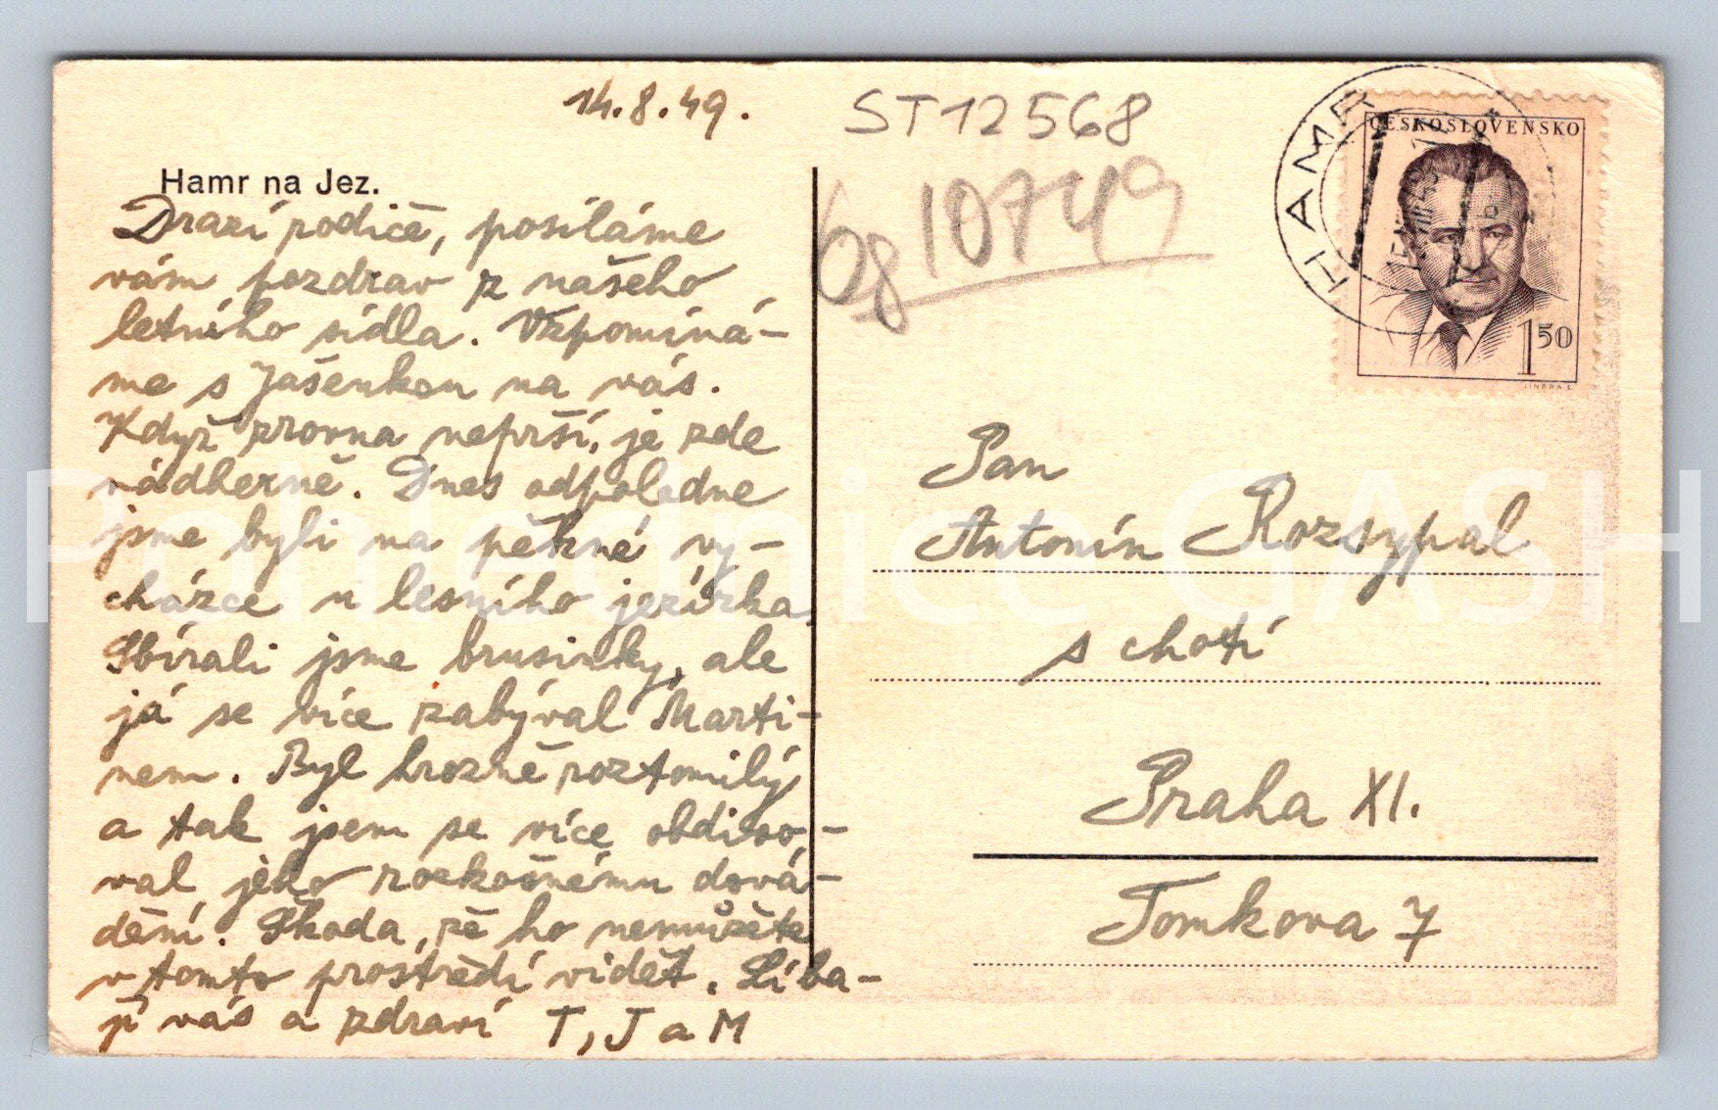 14.8.49.
ST12568
68 10749
HAMR
ČESKOSLOVENSKO
1 50
JINDRA S.
Hamr na Jez.
Drazí rodiče, posíláme
vám pozdrav z našeho
letního sídla. Vzpomíná-
me s Jašenkou na vás.
Když zrovna neprší, je zde
nádherně. Dnes odpoledne
jsme byli na pěkné vy-
cházce u lesního jezírka.
Sbírali jsme brusinky, ale
já se více zabýval Marti-
nem. Byl hrozně roztomilý
a tak jsem se více obdivo-
val jeho rozkošnému dová-
dění. Škoda, že ho nemůžete
v tomto prostředí vidět. Líba-
jí vás a zdraví T, J a M
Pan
Antonín Rozsypal
s chotí
Praha XI.
Tomkova 7
Pohlednice GASH